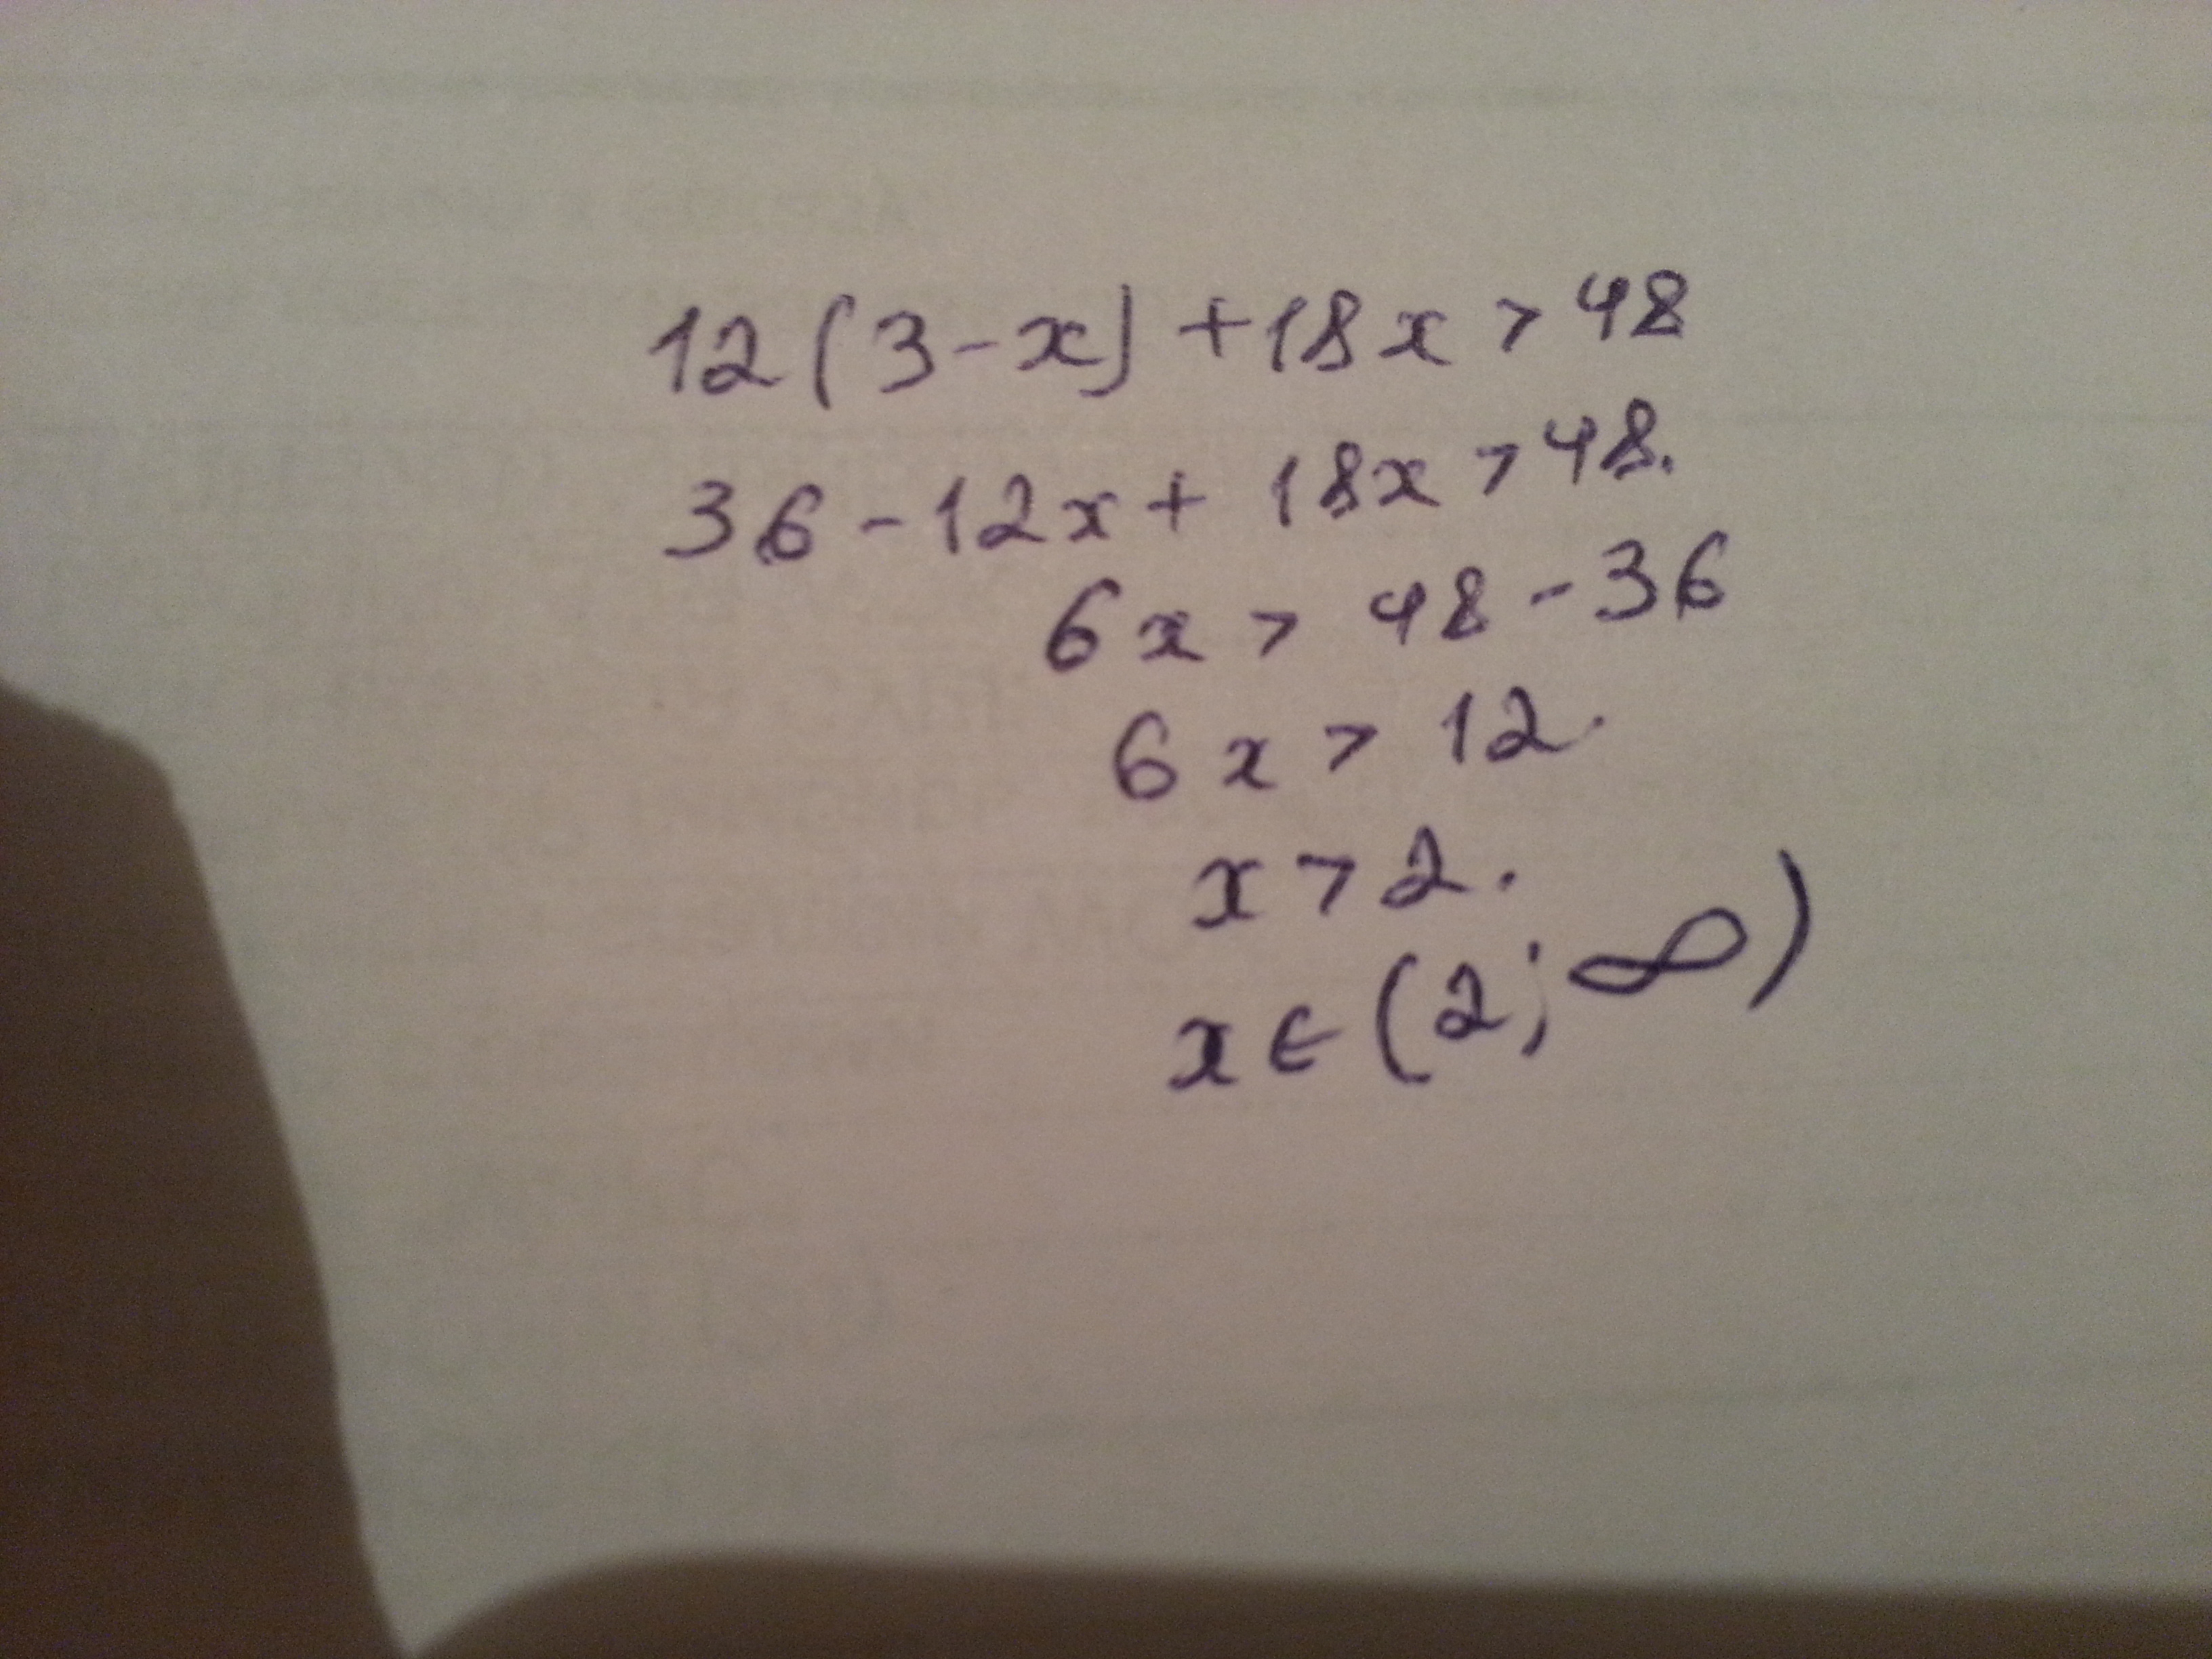 12(3-x)+18x>48
36-12x+18x>48.
6x>48-36
6x>12.
x>2.
x∈(2;∞)